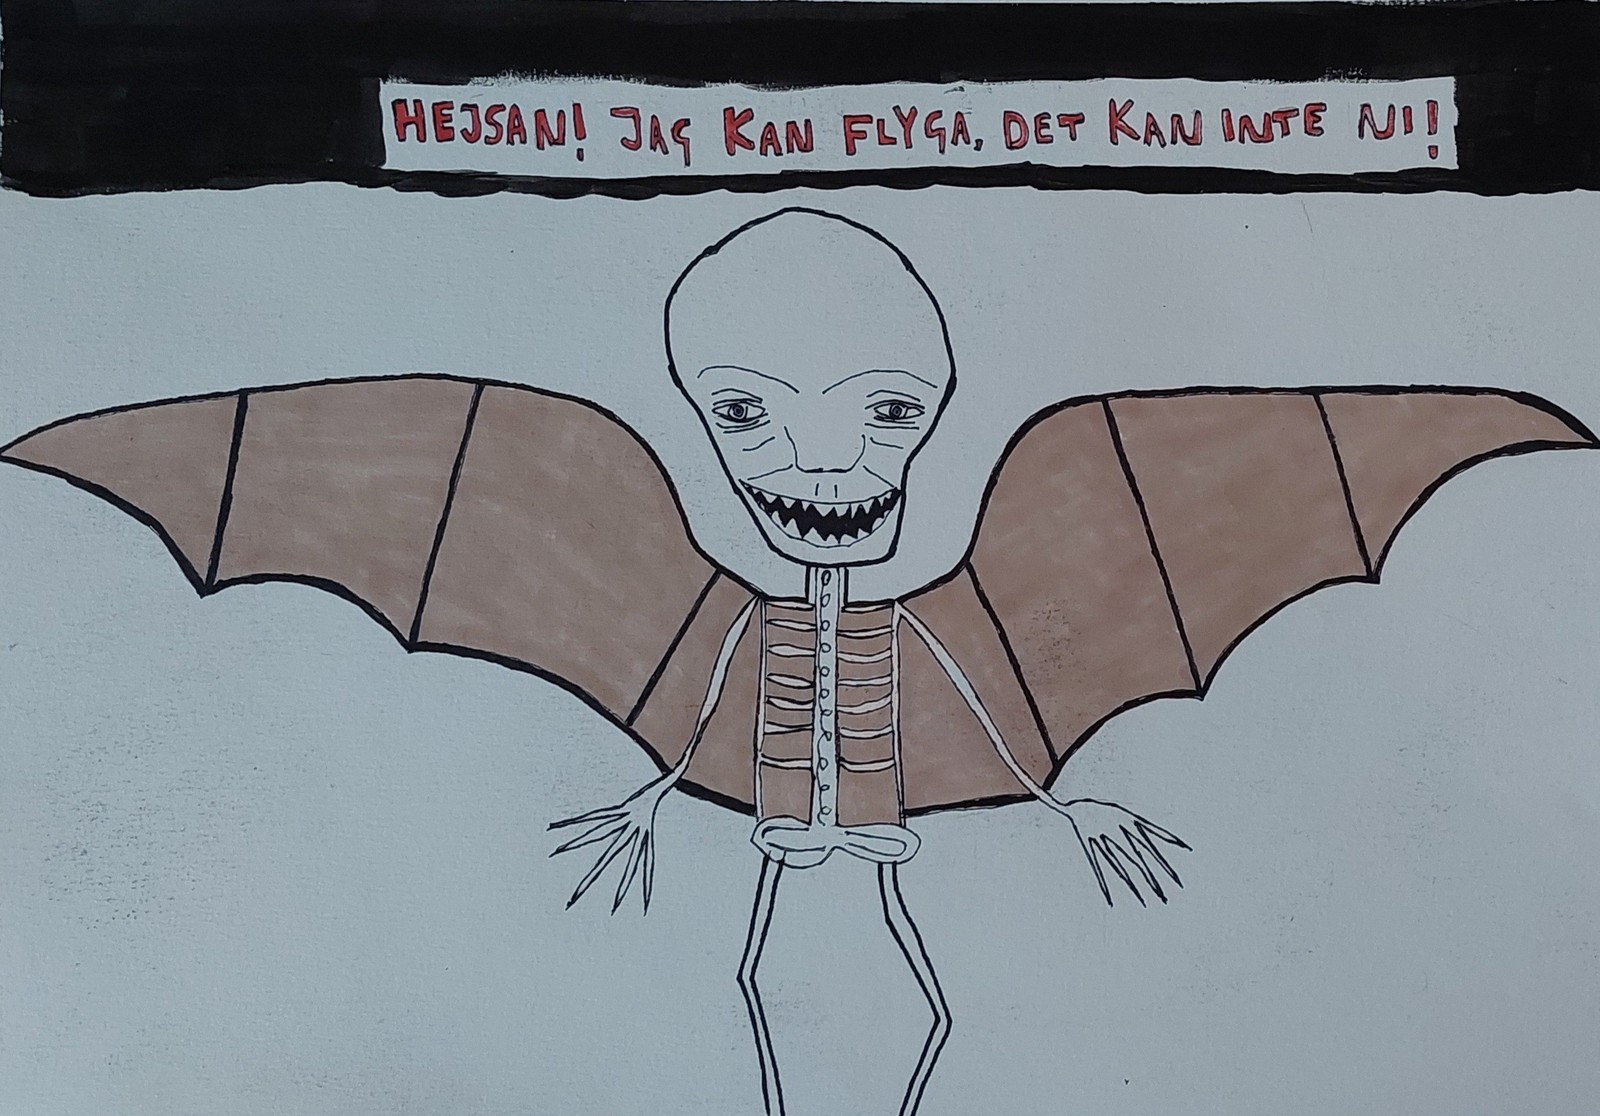 HEJSAN! JAG KAN FLYGA, DET KAN INTE NI!